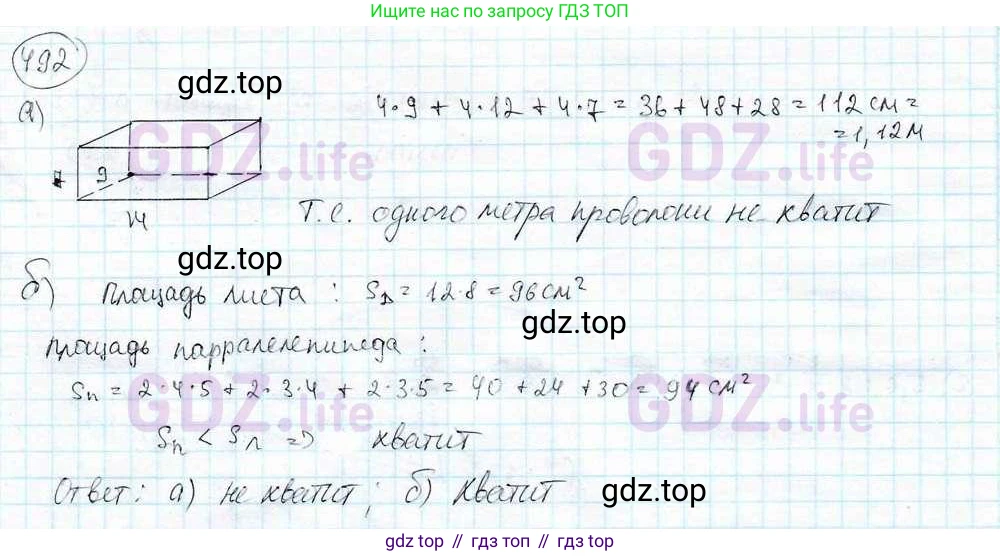 Ищите ответы по запросу ГДЗ ТОП
492
gdz.top
а)
4·9 + 4·12 + 4·7 = 36 + 48 + 28 = 112 см =
= 1,12 м
GDZ.life
GDZ.life
9
Т.е. одного метра проволоки не хватит
gdz.top
б) Площадь листа : Sл = 12·8 = 96 см²
gdz.top
площадь парралелепипеда :
Sп = 2·4·5 + 2·3·4 + 2·3·5 = 40 + 24 + 30 = 94 см²
GDZ.life
GDZ.life
Sп < Sл => хватит
Ответ: а) не хватит; б) хватит
gdz.top
gdz top // гдз топ // gdz.top